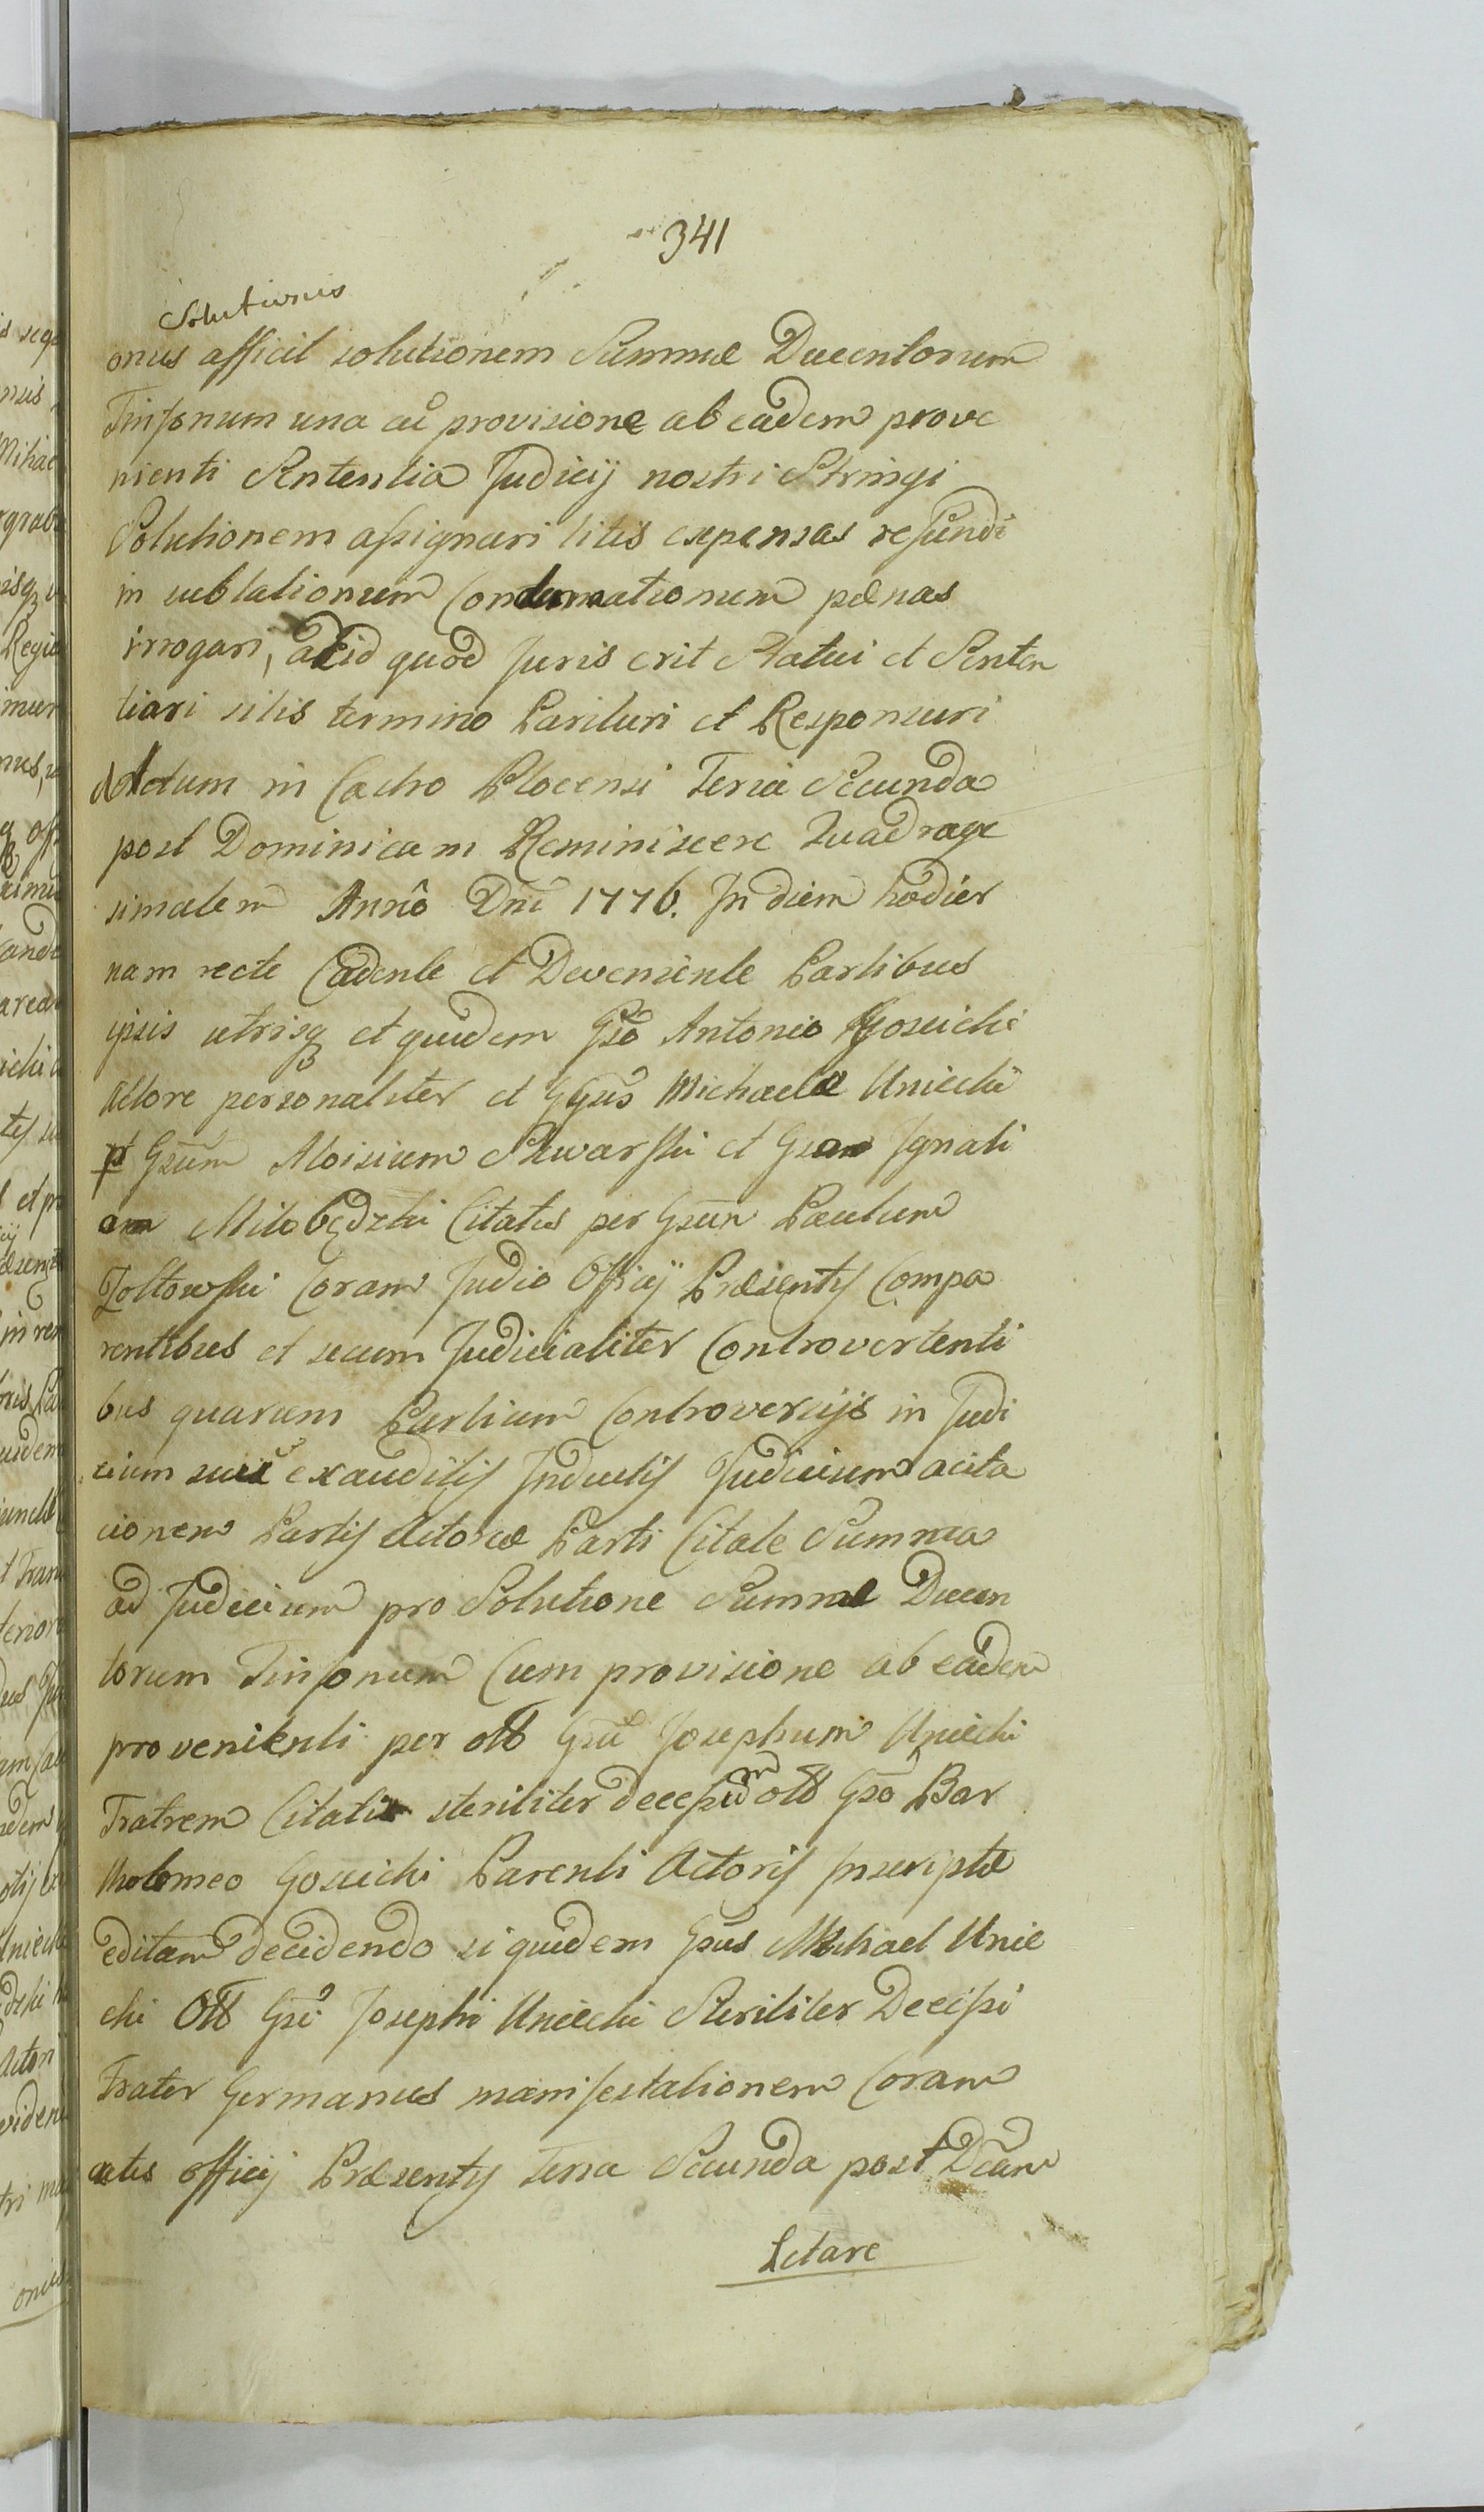 341
Solutionis
onus afficit solutionem Summæ Ducentorum
Tinfonum una cũ provisione ab eadem prove
nienti Sententia Judicij nostri Stringi
Solutionem assignari litis expensas refundi
in sublationum Condemnationum pænas
irrogari, at id quod Juris erit Statui et Senten
tiari sitis termino Parituri et Responsuri
Actum in Castro Plocensi Feria Secunda
post Dominicam Reminiscere Quadrage
simalem Anno Dni 1776. In diem hodier
nam recte Cadente et Deveniente Partibus
ipsis utrisq et quidem Gso Antonio Gosicki
Actore personaliter et Ggus Michaele Uniecki
pt Gsum Aloisium Skwarski et Gsum Ignati
um Miłobędzki Citatus per Gsum Paulum
Zołtowski Coram Judio Officij Præsentis Compa
rentibus et secum Judicialiter Controvertenti
bus quarum Partium Controversijs in Judi
cium suis exauditis Inductis Judicium acita
cionem Partis Actoræ Parti Citate Summa
ad Judicium pro Solutione Summæ Ducen
torum Tinfonum Cum provisione ab eadem
provenienti per olt Gsu Josephum Uniecki
Fratrem Citati steriliter decessum olt Gso Bar
tholomeo Gosicki Parenti Actoris Inscriptæ
editam decidendo siquidem Gsus Michael Unie
cki Olt Gsi Josephi Uniecki Steriliter Decessi
Frater Germanus manifestationem Coram
actis officij Præsentis Feria Secunda post Dcam
Letare